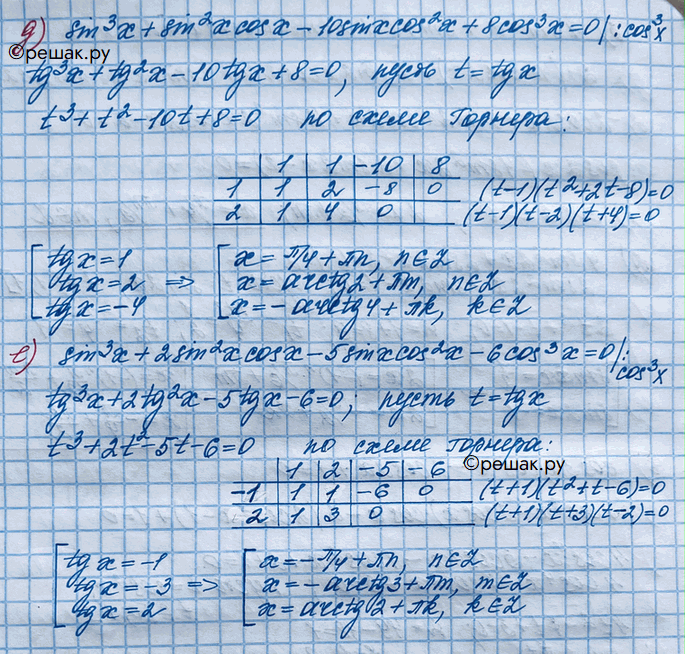 д) sin³x + sin²x cosx − 10sinx cos²x + 8cos³x = 0 | : cos³x
©решак.ру
tg³x + tg²x − 10tgx + 8 = 0, пусть t = tgx
t³ + t² − 10t + 8 = 0 по схеме Горнера:
1 1 −10 8
1 1 2 −8 0 (t−1)(t²+2t−8)=0
2 1 4 0 (t−1)(t−2)(t+4)=0
tgx = 1 x = π/4 + πn, n∈Z
tgx = 2 ⇒ x = arctg2 + πm, n∈Z
tgx = −4 x = −arctg4 + πk, k∈Z
е) sin³x + 2sin²x cosx − 5sinx cos²x − 6cos³x = 0 | : cos³x
tg³x + 2tg²x − 5tgx − 6 = 0; пусть t = tgx
t³ + 2t² − 5t − 6 = 0 по схеме Горнера:
©решак.ру
1 2 −5 −6
−1 1 1 −6 0 (t+1)(t²+t−6)=0
2 1 3 0 (t+1)(t+3)(t−2)=0
tgx = −1 x = −π/4 + πn, n∈Z
tgx = −3 ⇒ x = −arctg3 + πm, m∈Z
tgx = 2 x = arctg2 + πk, k∈Z